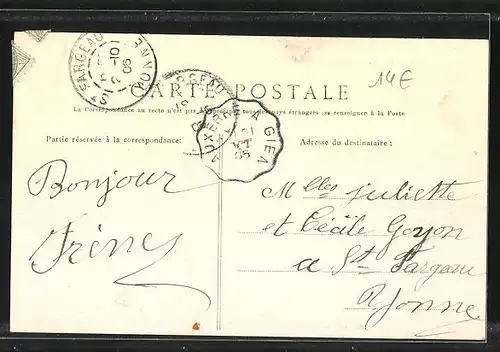 ST FARGEAU YONNE
10
05
14€
CARTE POSTALE
La Correspondance au recto n'est pas
se renseigner à la Poste
AUXERRE A GIEN
21
OCT
05
Partie réservée à la correspondance:
Adresse du destinataire :
Bonjour
Irène
Mlles Juliette
et Cécile Goyon
a St Fargeau
Yonne